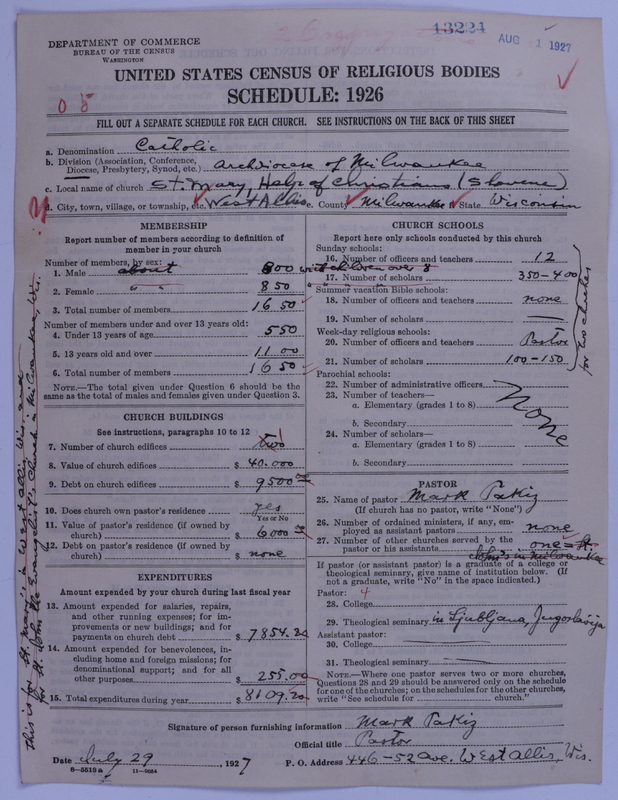 13221
AUG 1 1927
DEPARTMENT OF COMMERCE
BUREAU OF THE CENSUS
WASHINGTON
UNITED STATES CENSUS OF RELIGIOUS BODIES
SCHEDULE: 1926
0 5
FILL OUT A SEPARATE SCHEDULE FOR EACH CHURCH. SEE INSTRUCTIONS ON THE BACK OF THIS SHEET
a. Denomination Catholic
b. Division (Association, Conference, Diocese, Presbytery, Synod, etc.) Archdiocese of Milwaukee
c. Local name of church St. Mary, Help of Christians (Slovene)
d. City, town, village, or township, etc. West Allis e. County Milwaukee f. State Wisconsin
MEMBERSHIP
Report number of members according to definition of
member in your church
Number of members, by sex:
1. Male about 800 with children over 8
2. Female " " 850
3. Total number of members 1650
Number of members under and over 13 years old:
4. Under 13 years of age 550
5. 13 years old and over 1100
6. Total number of members 1650
NOTE.—The total given under Question 6 should be the
same as the total of males and females given under Question 3.
CHURCH BUILDINGS
See instructions, paragraphs 10 to 12
7. Number of church edifices two 1
8. Value of church edifices $ 40.000
9. Debt on church edifices $ 9500
10. Does church own pastor's residence yes
Yes or No
11. Value of pastor's residence (if owned by
church) $ 6000
12. Debt on pastor's residence (if owned by
church) $ none
EXPENDITURES
Amount expended by your church during last fiscal year
13. Amount expended for salaries, repairs,
and other running expenses; for im-
provements or new buildings; and for
payments on church debt $ 7854.20
14. Amount expended for benevolences, in-
cluding home and foreign missions; for
denominational support; and for all
other purposes $ 255.00
15. Total expenditures during year $ 8109.20
CHURCH SCHOOLS
Report here only schools conducted by this church
Sunday schools:
16. Number of officers and teachers 12
17. Number of scholars 350-400
Summer vacation Bible schools:
18. Number of officers and teachers none
19. Number of scholars —
Week-day religious schools:
20. Number of officers and teachers Pastor
21. Number of scholars 100-150
for two churches
Parochial schools:
22. Number of administrative officers
23. Number of teachers—
a. Elementary (grades 1 to 8)
b. Secondary
24. Number of scholars—
a. Elementary (grades 1 to 8)
b. Secondary
None
PASTOR
25. Name of pastor Mark Pakiz
(If church has no pastor, write "None")
26. Number of ordained ministers, if any, em-
ployed as assistant pastors none
27. Number of other churches served by the
pastor or his assistants one = St.
John's in Milwaukee
If pastor (or assistant pastor) is a graduate of a college or
theological seminary, give name of institution below. (If
not a graduate, write "No" in the space indicated.)
Pastor: 4
28. College
29. Theological seminary in Ljubljana, Jugoslavija
Assistant pastor:
30. College
31. Theological seminary
NOTE.—Where one pastor serves two or more churches,
Questions 28 and 29 should be answered only on the schedule
for one of the churches; on the schedules for the other churches,
write "See schedule for church."
Signature of person furnishing information Mark Pakiz
Official title Pastor
Date July 29, 1927 P. O. Address 446-52 ave. West Allis, Wis.
8-5518a 11-9054
This is for St. Mary's in West Allis Wis and
for St. John the Evangelist's Church in Milwaukee, Wis.